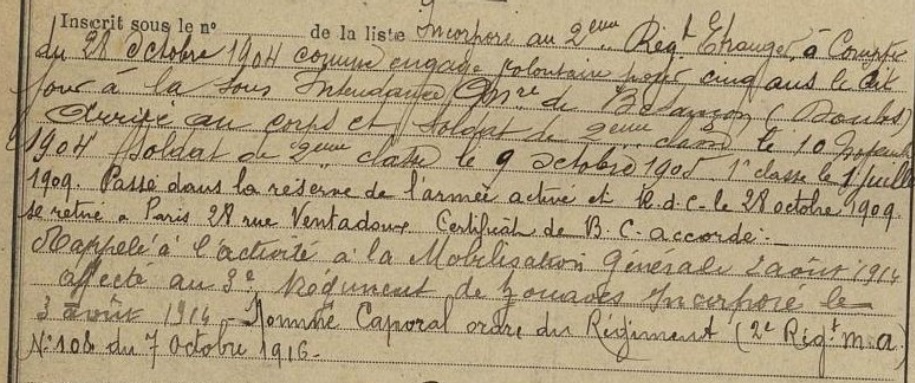 Inscrit sous le n° de la liste Incorporé au 2eme Regt Etranger, à Compter
du 28 Octobre 1904 comme engagé volontaire pour cinq ans le dit
jour à la Sous Intendance de Besançon (Doubs)
Arrivé au corps et soldat de 2eme classe le 10 Novembre
1904 Soldat de 2eme classe le 9 octobre 1905 1e classe le 1 juillet
1909. Passé dans la réserve de l'armée active et R.d.C. le 28 octobre 1909.
se retire a Paris 28 rue Ventadour Certificat de B.C. accordé :-
Rappelé à l'activité à la Mobilisation Générale 2 août 1914
affecté au 3e Régiment de Zouaves Incorporé le
3 août 1914 - Nommé Caporal ordre du Régiment (2e Régt m.a)
N° 108 du 7 Octobre 1916-